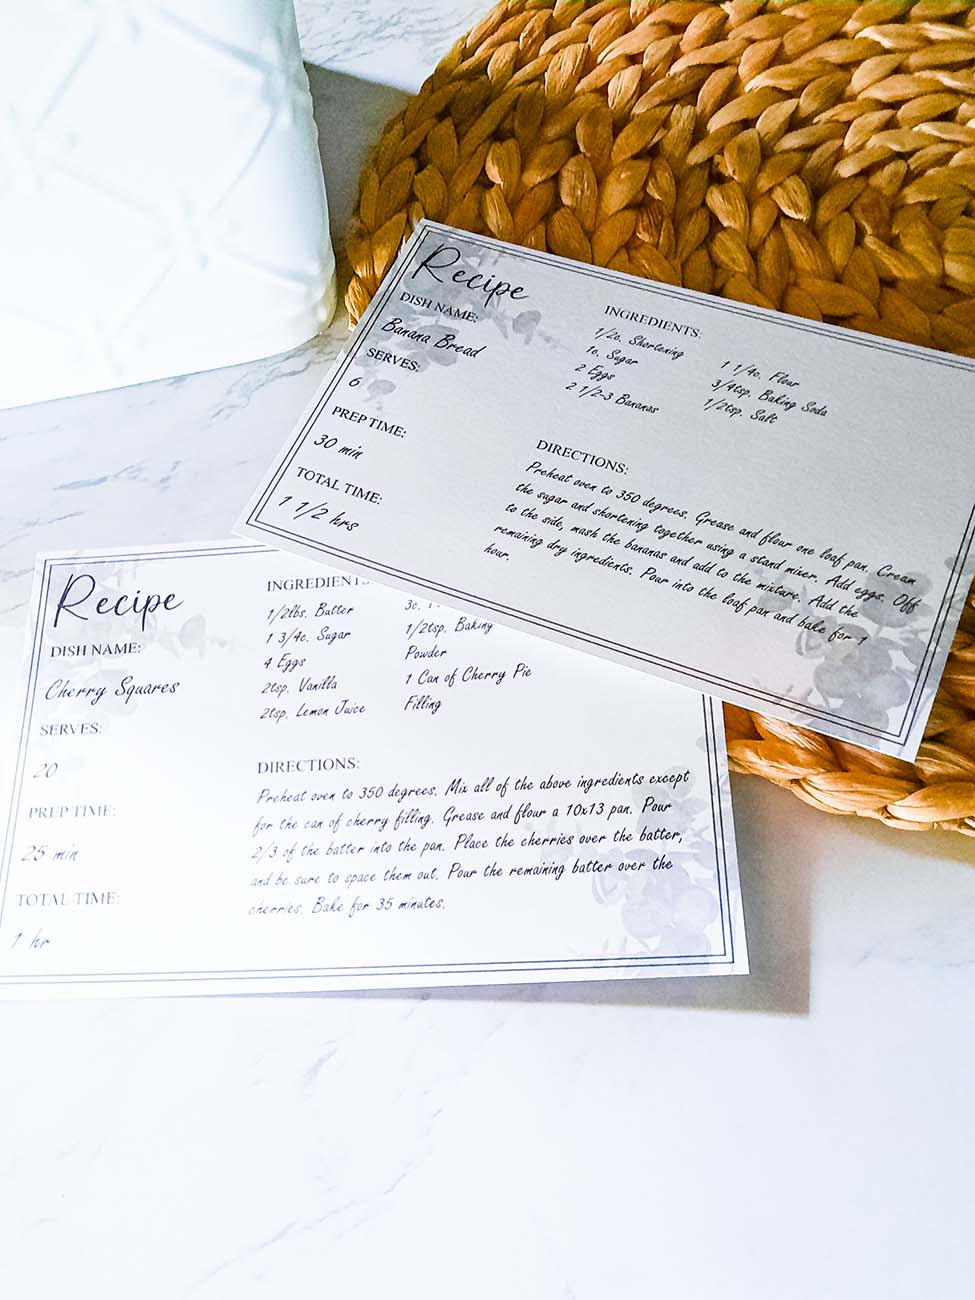 Recipe
DISH NAME:
Banana Bread
SERVES:
6
PREP TIME:
30 min
TOTAL TIME:
1 1/2 hrs
INGREDIENTS:
1/2c. Shortening
1c. Sugar
2 Eggs
2 1/2-3 Bananas
1 1/4c. Flour
3/4tsp. Baking Soda
1/2tsp. Salt
DIRECTIONS:
Preheat oven to 350 degrees. Grease and flour one loaf pan. Cream
the sugar and shortening together using a stand mixer. Add eggs. Off
to the side, mash the bananas and add to the mixture. Add the
remaining dry ingredients. Pour into the loaf pan and bake for 1
hour.
Recipe
DISH NAME:
Cherry Squares
SERVES:
20
PREP TIME:
25 min
TOTAL TIME:
1 hr
INGREDIENTS:
1/2lbs. Butter
1 3/4c. Sugar
4 Eggs
2tsp. Vanilla
2tsp. Lemon Juice
3c.
1/2tsp. Baking
Powder
1 Can of Cherry Pie
Filling
DIRECTIONS:
Preheat oven to 350 degrees. Mix all of the above ingredients except
for the can of cherry filling. Grease and flour a 10x13 pan. Pour
2/3 of the batter into the pan. Place the cherries over the batter,
and be sure to space them out. Pour the remaining batter over the
cherries. Bake for 35 minutes.